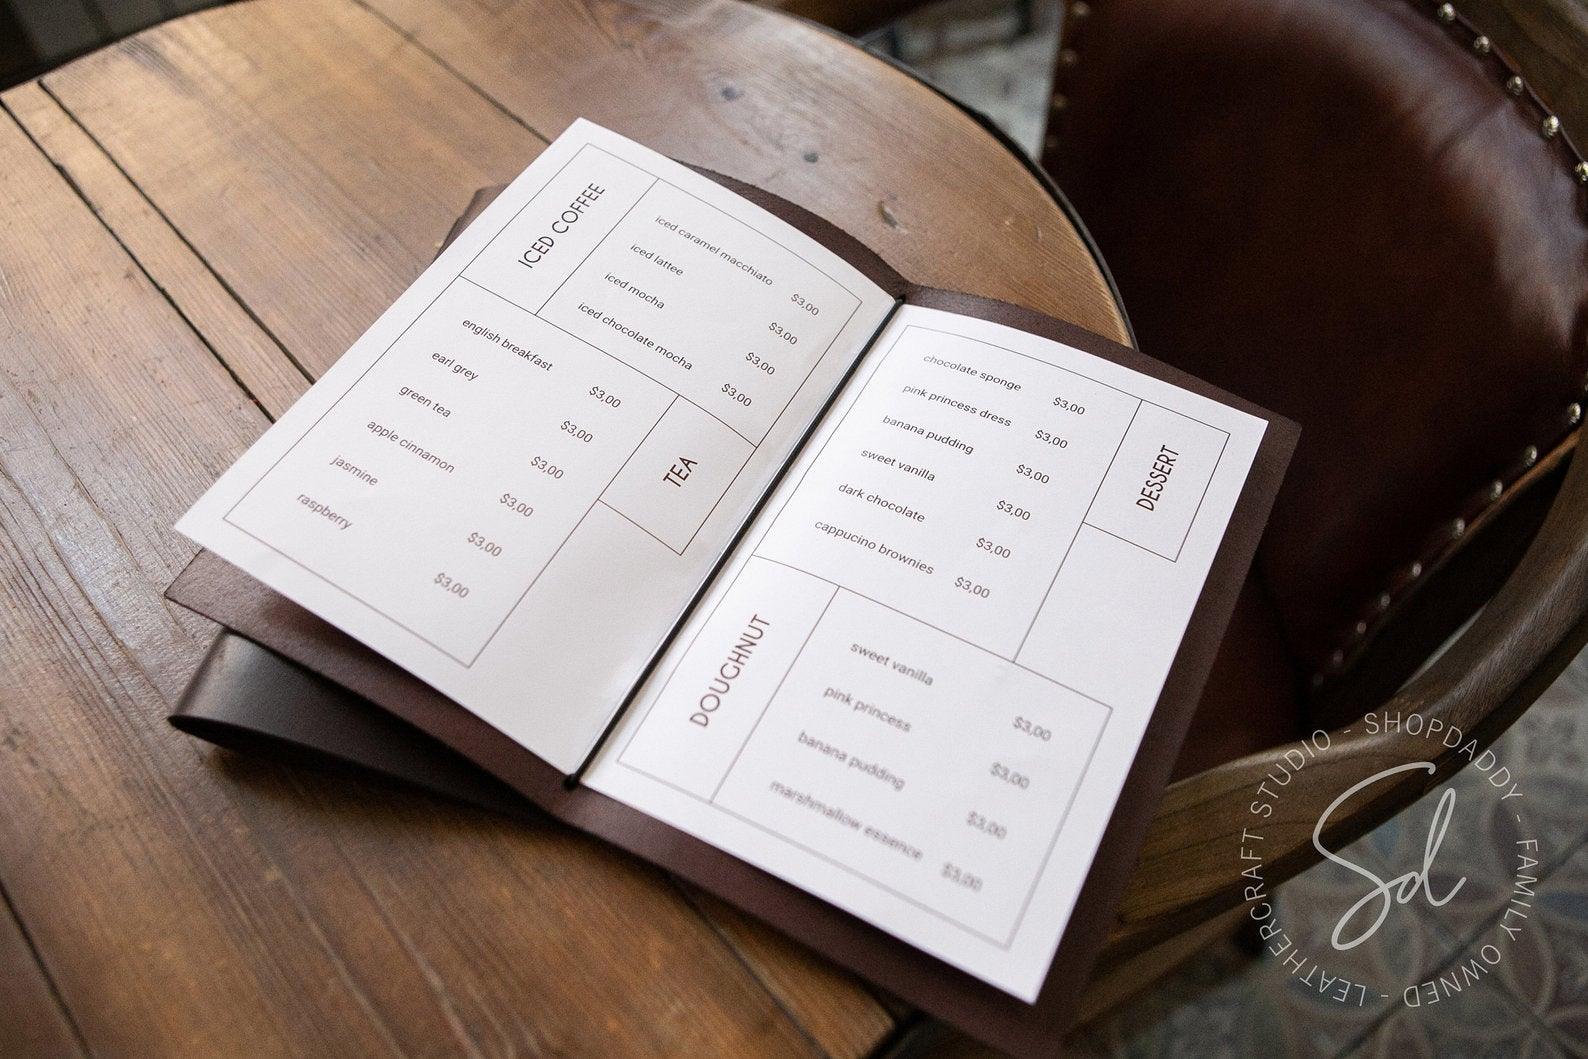 ICED COFFEE
iced caramel macchiato $3,00
iced lattee $3,00
iced mocha $3,00
iced chocolate mocha $3,00
TEA
english breakfast $3,00
earl grey $3,00
green tea $3,00
apple cinnamon $3,00
jasmine $3,00
raspberry $3,00
DESSERT
chocolate sponge $3,00
pink princess dress $3,00
banana pudding $3,00
sweet vanilla $3,00
dark chocolate $3,00
cappucino brownies $3,00
DOUGHNUT
sweet vanilla $3,00
pink princess $3,00
banana pudding $3,00
marshmallow essence $3,00
Sd
LEATHERCRAFT STUDIO - SHOPDADDY - FAMILY OWNED -